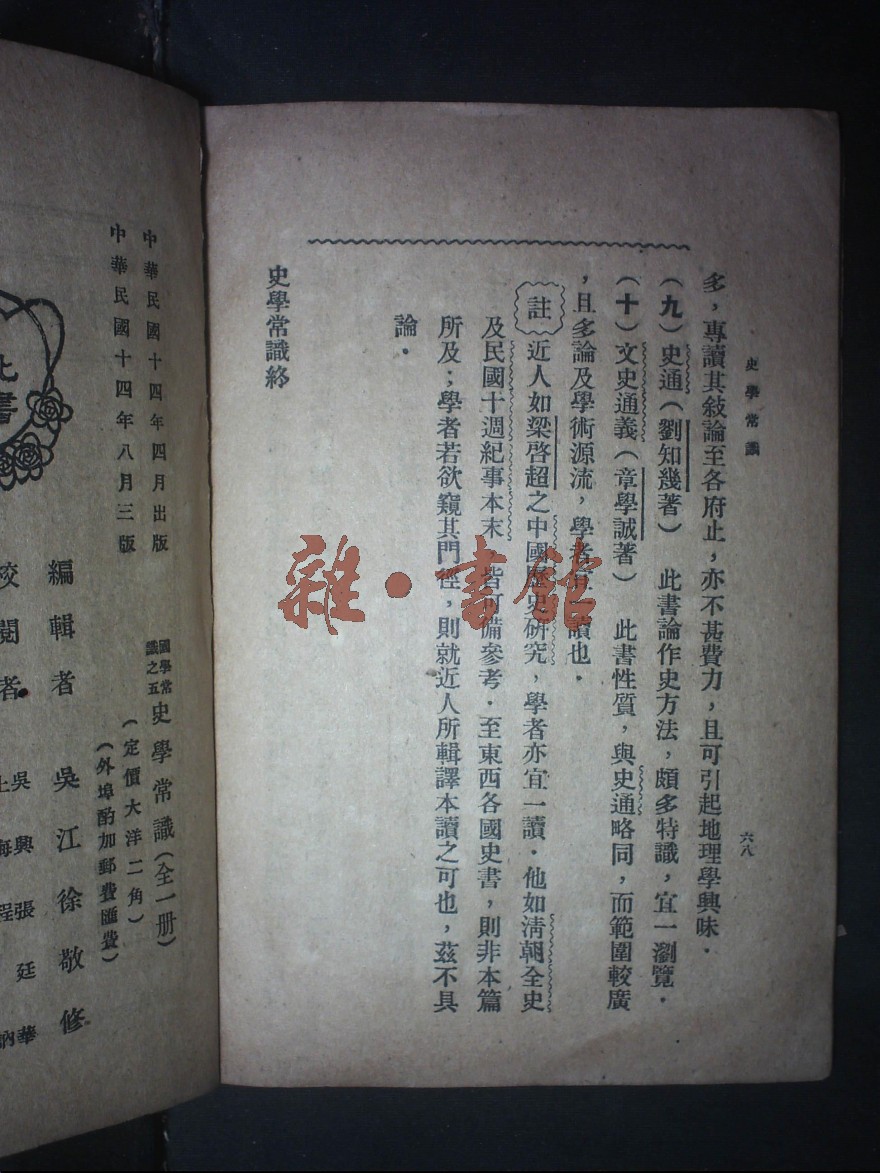 史學常識
六八
多，專讀其敍論至各府止，亦不甚費力，且可引起地理學興味．
（九）史通（劉知幾著）　此書論作史方法，頗多特識，宜一瀏覽．
（十）文史通義（章學誠著）　此書性質，與史通略同，而範圍較廣
，且多論及學術源流，學者宜一讀也．
註 近人如梁啓超之中國歷史研究，學者亦宜一讀．他如淸朝全史
及民國十週紀事本末，皆可備參考．至東西各國史書，則非本篇
所及；學者若欲窺其門徑，則就近人所輯譯本讀之可也，茲不具
論．
史學常識終
雜·書館
國學常
識之五
史學常識（全一册）
（定價大洋二角）
（外埠酌加郵費匯費）
中華民國十四年四月出版
中華民國十四年八月三版
編輯者　吳江徐敬修
校閱者　吳興張廷華
書